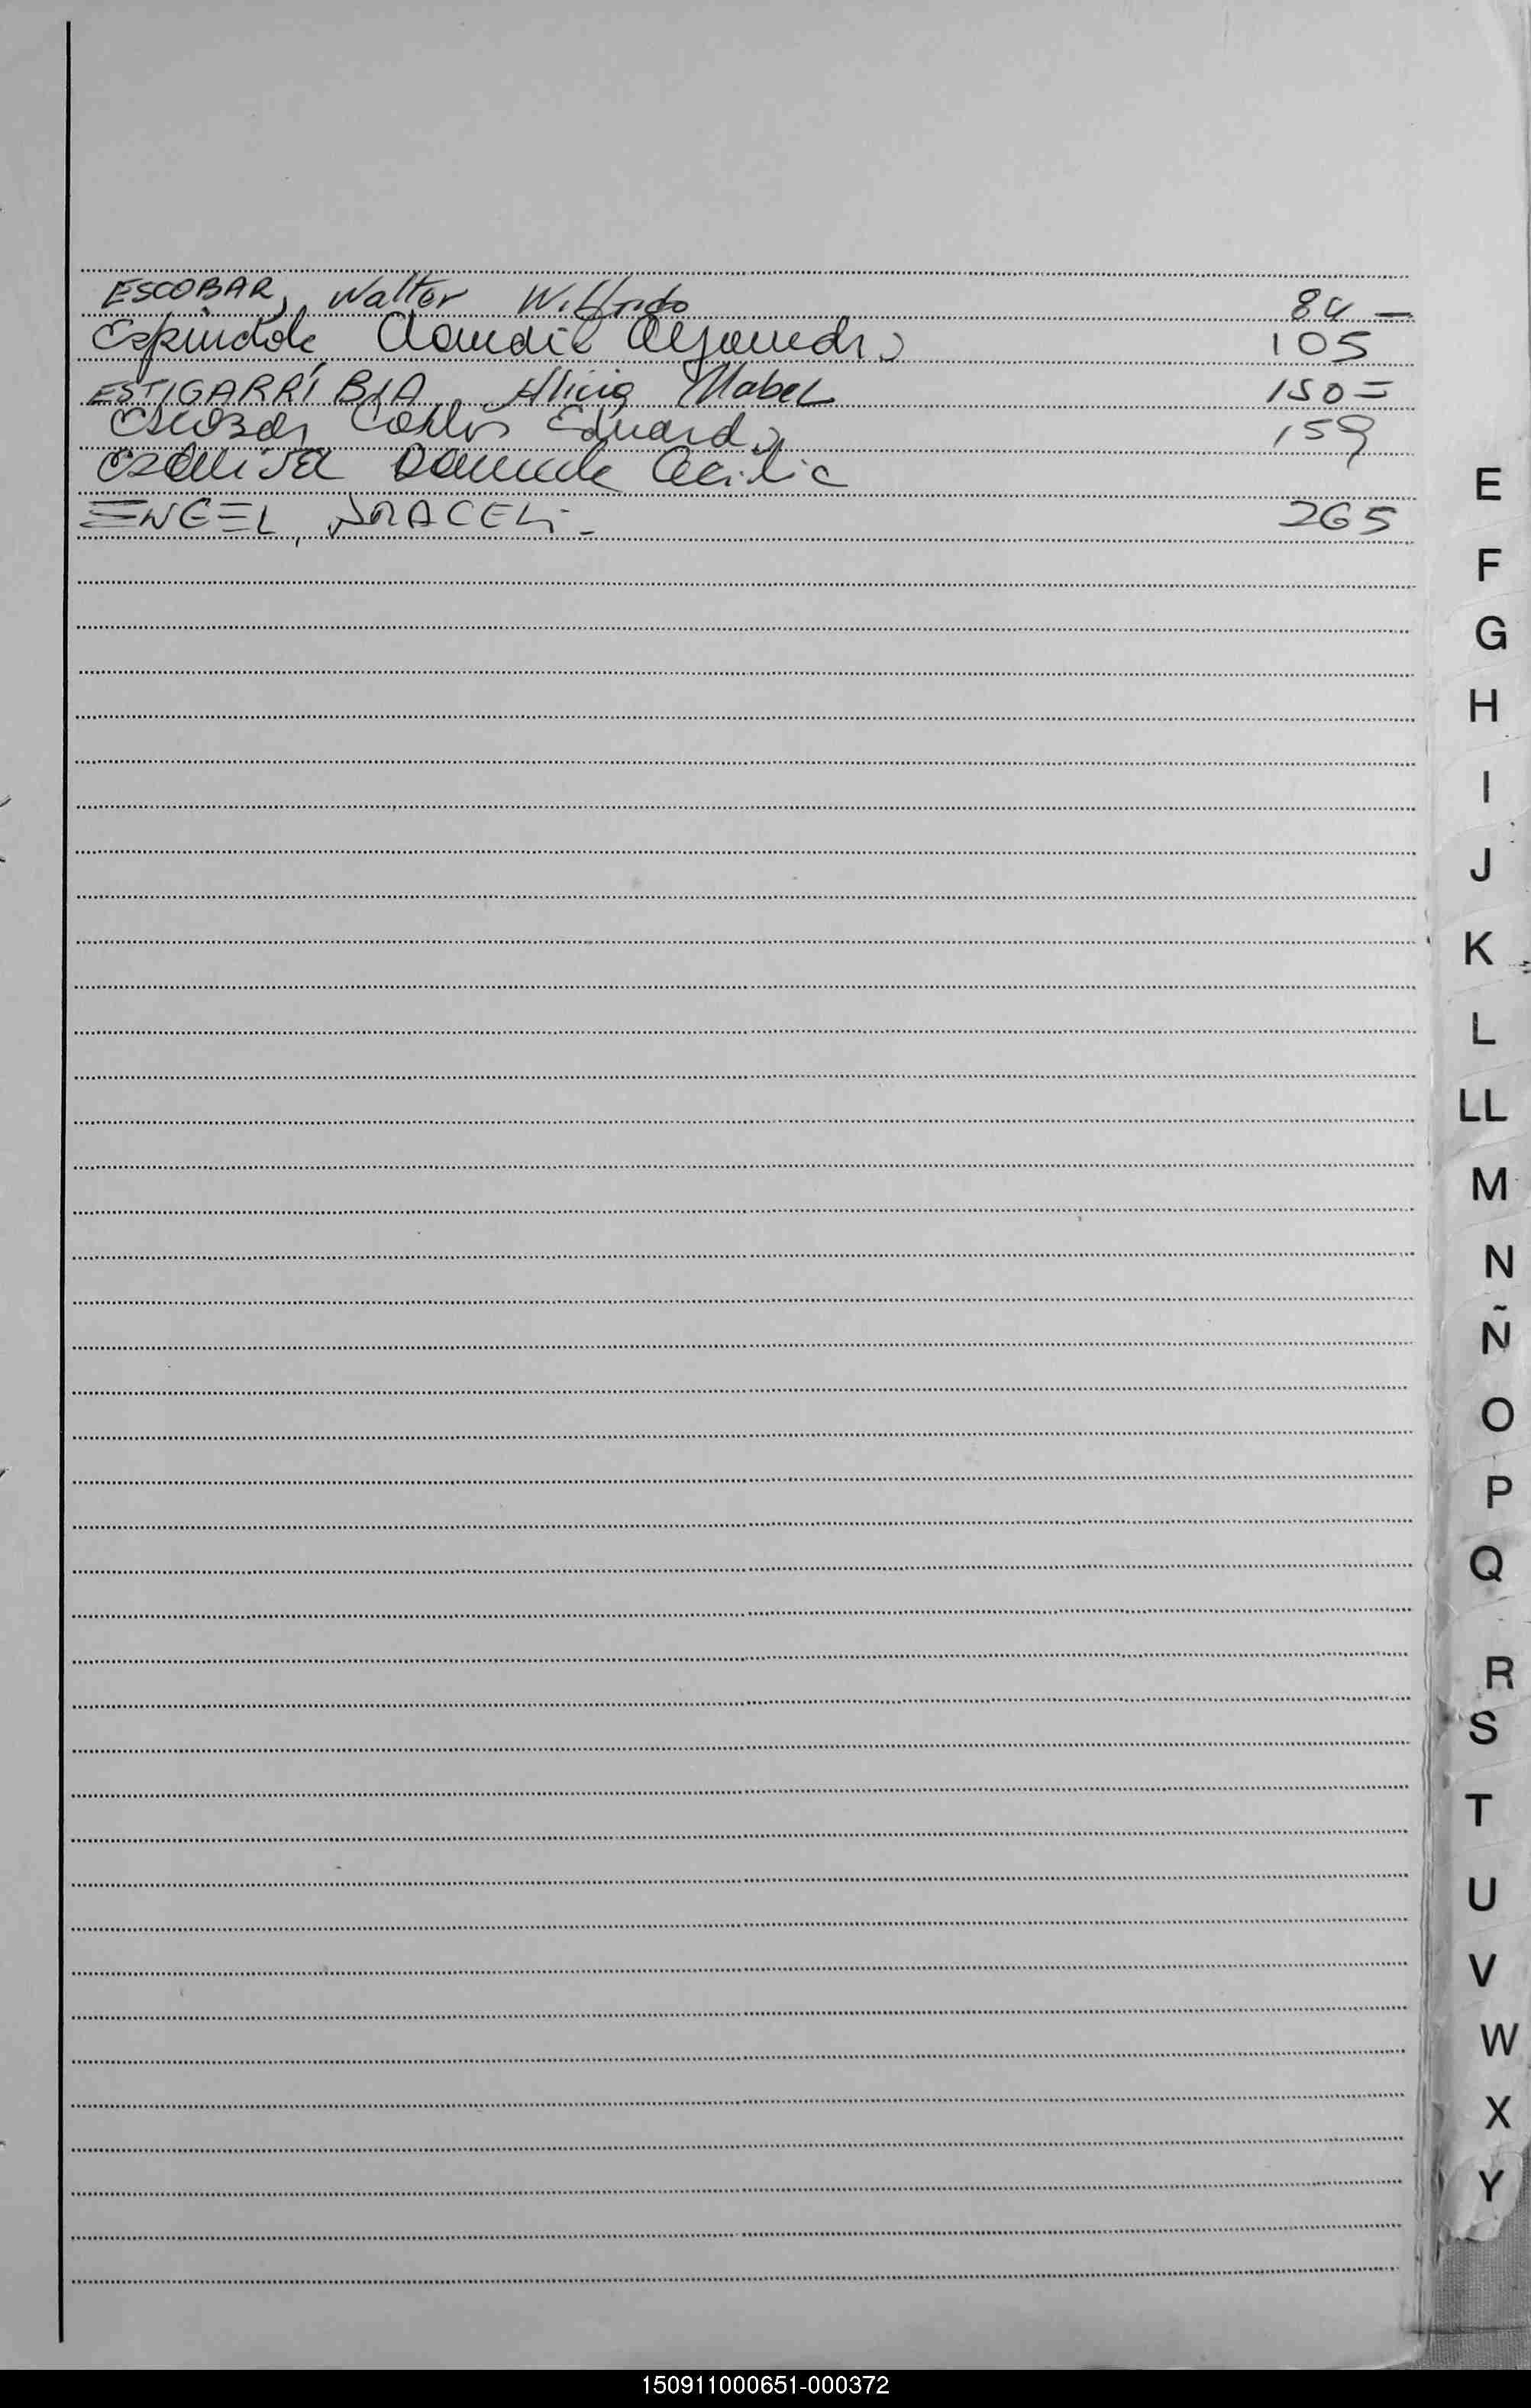 ESCOBAR, Walter Wilfrido 84 —
Espindola, Claudio Alejandro 105
ESTIGARRIBIA, Alicia Mabel 150 =
Escobar Carlos Eduardo 159
Daniela Cecilia
ENGEL, ARACELI - 265
E
F
G
H
I
J
K
L
LL
M
N
Ñ
O
P
Q
R
S
T
U
V
W
X
Y
150911000651-000372